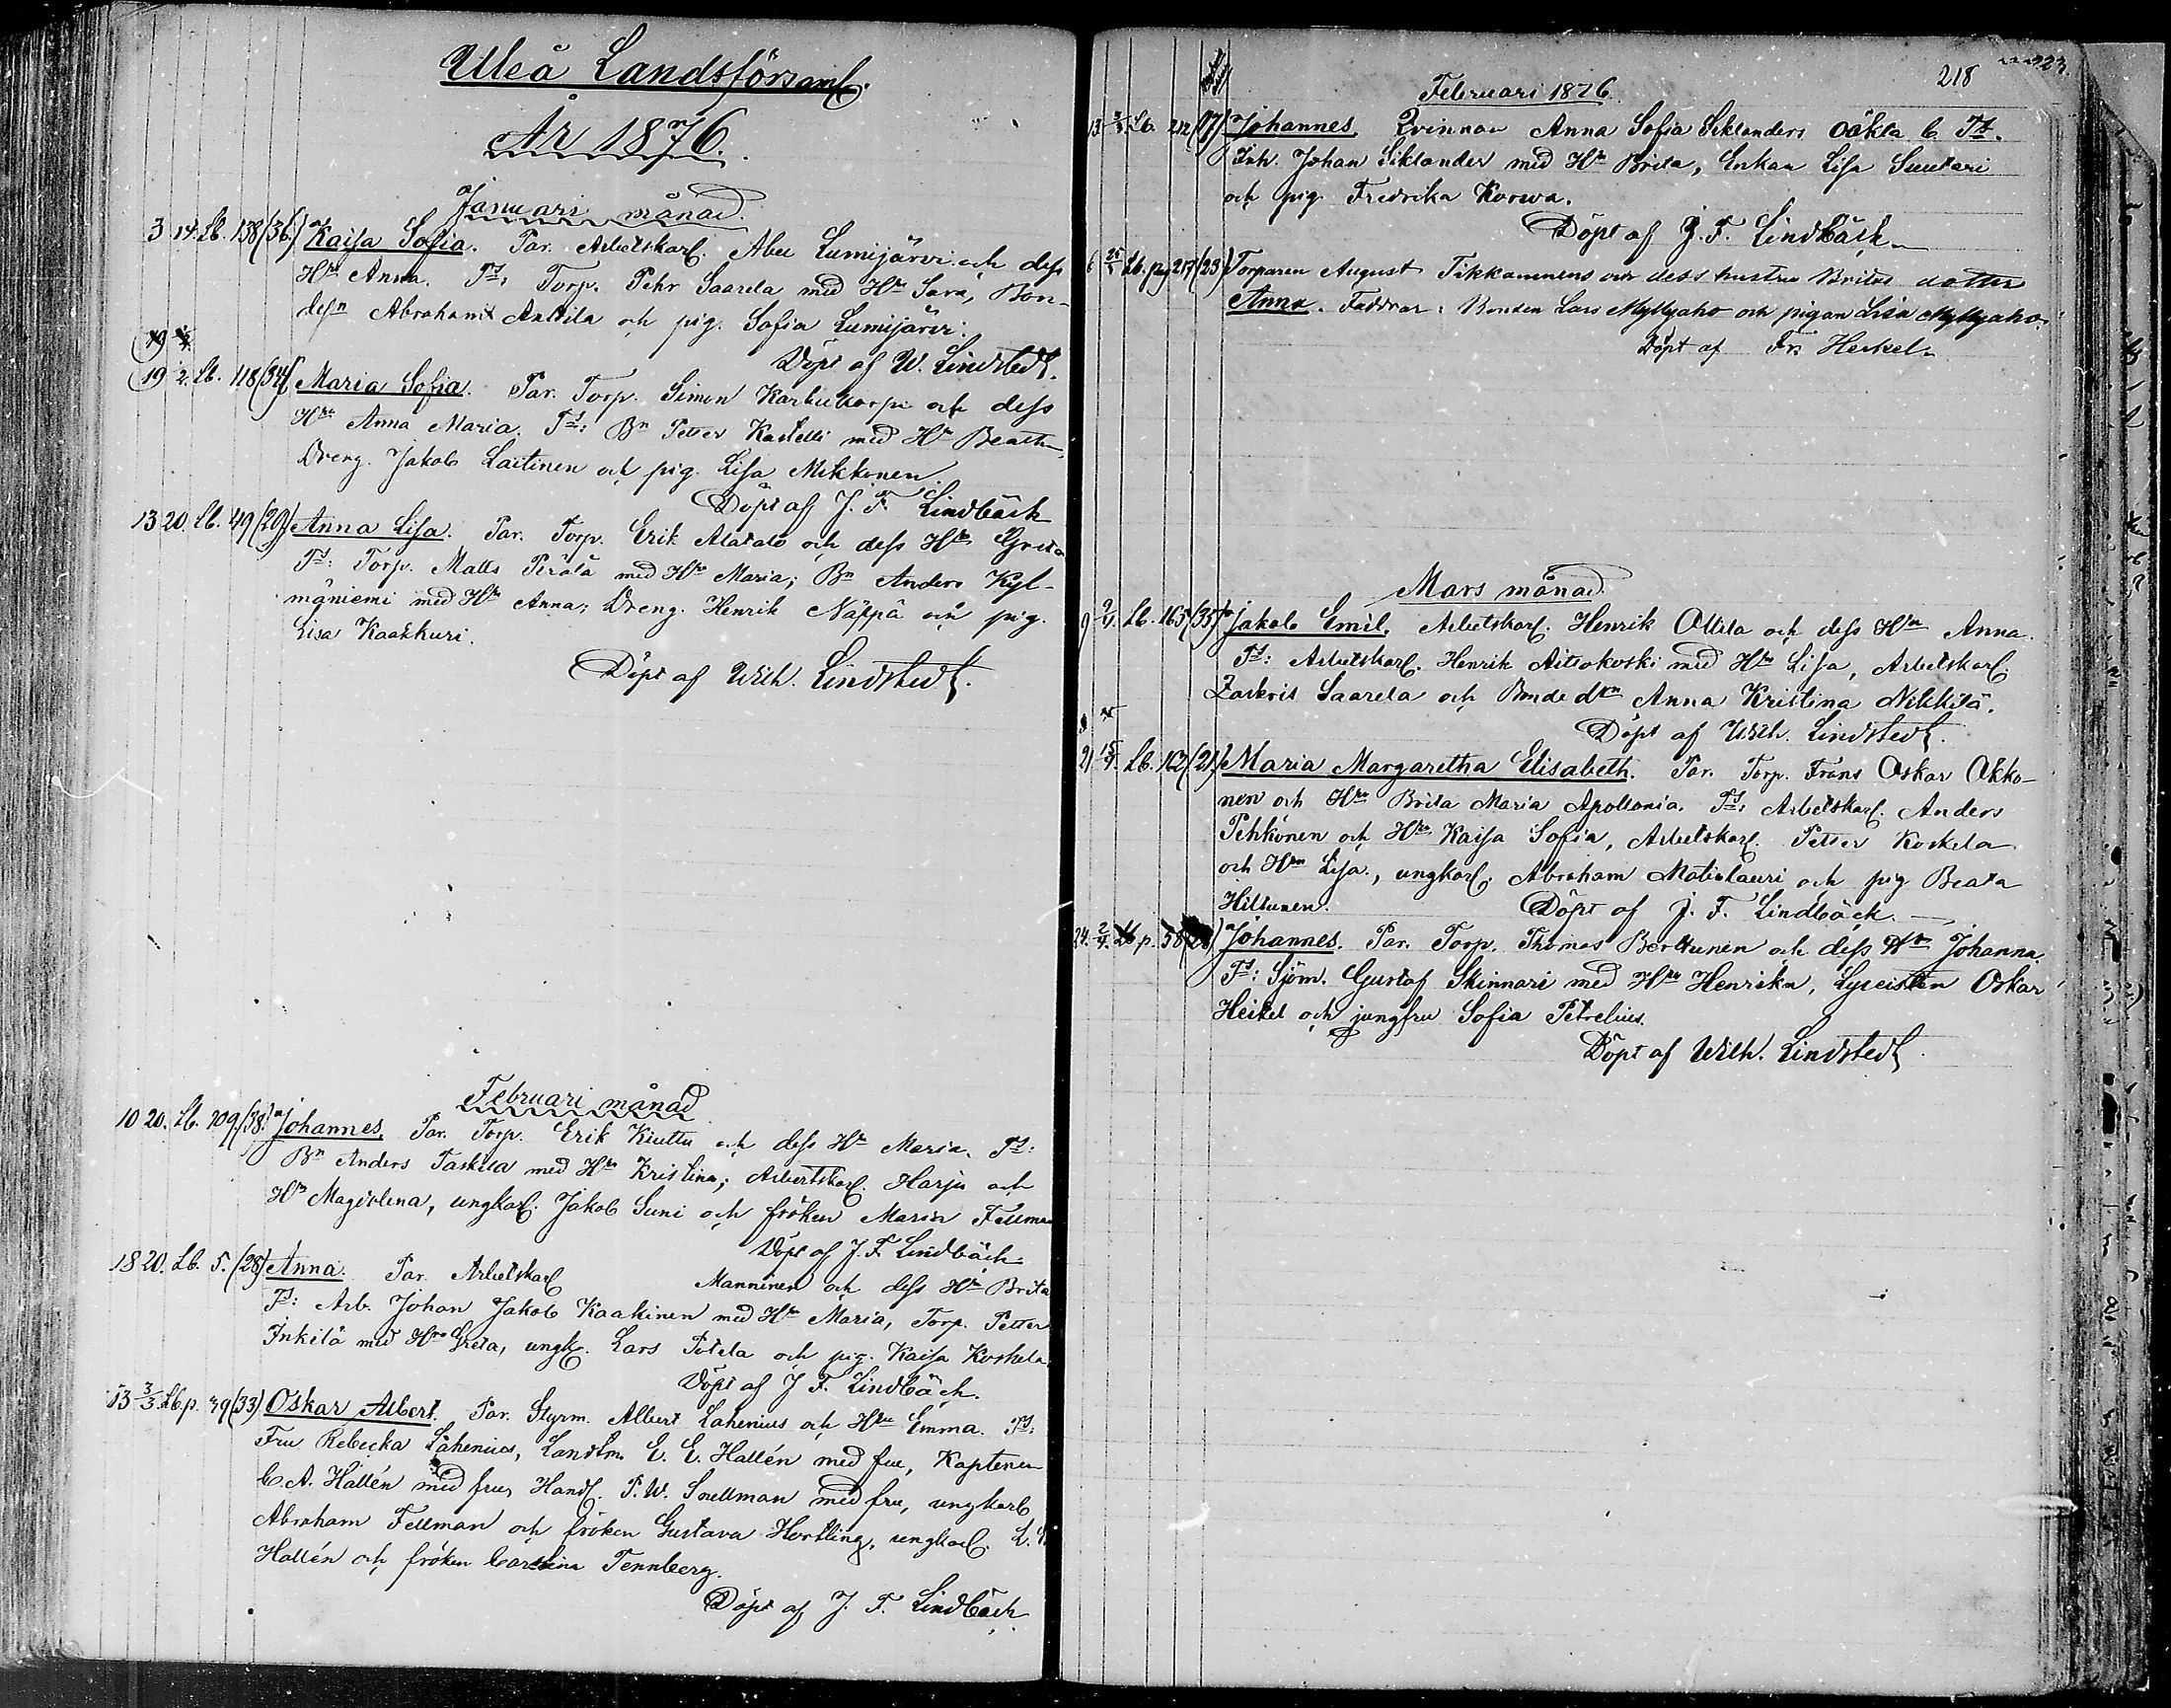 Uleå Landsförsaml.
År 1876.
Januari månad.
3 14. Lb. 138 (36.) Kaisa Sofia. Par. Arbetskarl. Abel Lumijärvi och dess
Hru Anna. Ts: Torp. Pehr Saarela med Hru Sara, Bon-
desn Abraham Anttila och pig. Sofia Lumijärvi.
Döpt af W. Lindstedt.
19 2. Lb. 118 (34) Maria Sofia. Par. Torp. Simon Karhukorpi och dess
Hru Anna Maria. Ts: Bn Petter Kastelli med Hr Beata,
Dreng. Jakob Laitinen och pig. Lisa Mikkonen.
Döpt af J. F. Lindbäck
13 20. Lb. 49 (29) Anna Lisa. Par. Torp. Erik Alatalo och dess Hru Greta
Ts: Torp. Matts Perälä med Hru Maria; Bn Anders Kyl-
mäniemi med Hru Anna; Dreng. Henrik Näppä och pig.
Lisa Kaakkuri.
Döpt af Wilh. Lindstedt.
Februari månad
10 20. Lb. 109 (38.) Johannes. Par. Torp. Erik Kiuttu och dess Hru Maria. Ts:
Bn Anders Taskila med Hru Kristina; Arbetskarl. Harju och
Hru Magdalena, ungkarl. Jakob Suni och fröken Maria Fellman
Döpt af J. F. Lindbäck
18 20. Lb. 5. (28) Anna. Par. Arbetskarl Manninen och dess Hru Brita
Ts: Arb. Johan Jakob Kaakinen med Hru Maria, Torp. Petter
Inkilä med Hru Greta, ungk. Lars Pietola och pig. Kaisa Koskela.
Döpt af J. F. Lindbäck.
13 3/3. Lb p. 39 (33) Oskar Albert. Par. Styrm. Albert Lahenius och Hru Emma. Ts:
Fru Rebecka Lahenius, Landtm. E. E. Hallén med fru, Kaptenen
C. A. Hallén med fru, Handl. P. W. Snellman med fru, ungkarl
Abraham Fellman och fröken Gustava Hortling, ungkarl. L.
Hallén och fröken Carolina Tennberg.
Döpt af J. F. Lindbäck.
218
Februari 1876.
13 Lb. 212 Johannes. Qvinnan Anna Sofia Siklanders oäkta b. Ts.
Inh. Johan Siklander med Hru Brita, Enkan Lisa Suutari
och pig Fredrika Korwa.
Döpt af J. F. Lindbäck
6 Lb. pg 217 (23) Torparen August Tikkanens och dess hustru Britas dotter
Anna. Faddrar: Bonden Lars Myllyaho och pigan Lisa Myllyaho.
Döpt af Fr. Heikel.
Mars månad
9 Lb. 165 (35) Jakob Emil. Arbetskarl. Henrik Ollila och dess Hru Anna.
Ts: Arbetskarl. Henrik Aitsokoski med Hru Lisa, Arbetskarl.
Zackris Saarela och Bonde dtr Anna Kristina Nikkilä.
Döpt af Wilh. Lindstedt.
21 15/4. Lb. 162 (21.) Maria Margaretha Elisabeth. Par. Torp. Frans Oskar Okko-
nen och Hru Brita Maria Apollonia. Ts: Arbetskarl. Anders
Pehkonen och Hru Kaisa Sofia, Arbetskarl. Petter Koskela
och Hru Lisa, ungkarl. Abraham Matinlauri och pig Beata
Hiltunen. Döpt af J. F. Lindbäck.
24. 2/4. Lb p. 58 Johannes. Par. Torp. Thomas Berttunen och dess Hru Johanna.
Ts: Sjöm. Gustaf Skinnari med Hru Henrika, Lyceisten Oskar
Heikel och jungfru Sofia Petrelius.
Döpt af Wilh. Lindstedt.